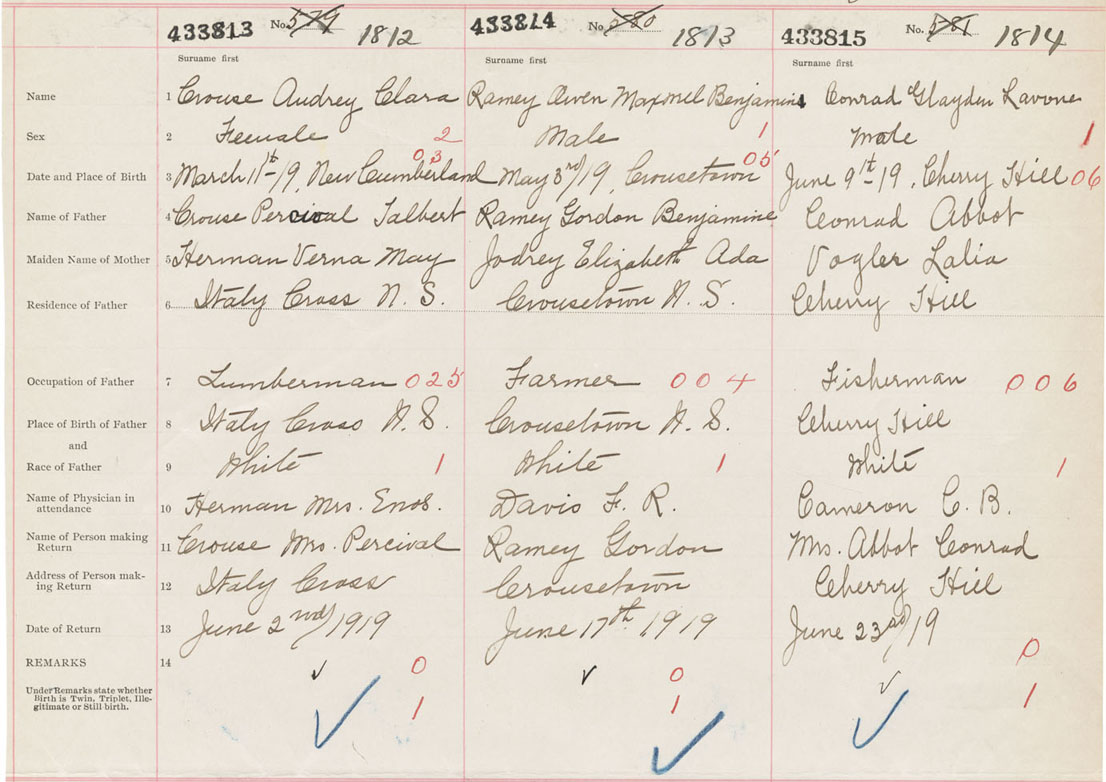 433813 No. 579 1812 433814 No. 580 1813 433815 No. 581 1814
Surname first Surname first Surname first
Name 1 Crouse Audrey Clara Ramey Owen Maxwel Benjamine Conrad Glayden Lavone
Sex 2 Female 2 Male 1 Male 1
03 05
Date and Place of Birth 3 March 11th-19, New Cumberland May 3rd/19, Crousetown June 9th-19, Cherry Hill 06
Name of Father 4 Crouse Percival Talbert Ramey Gordon Benjamine Conrad Abbot
Maiden Name of Mother 5 Herman Verna May Jodrey Elizabeth Ada Vogler Lalia
Residence of Father 6 Italy Cross N. S. Crousetown N. S. Cherry Hill
Occupation of Father 7 Lumberman 025 Farmer 004 Fisherman 006
Place of Birth of Father 8 Italy Cross N. S. Crousetown N. S. Cherry Hill
and
Race of Father 9 White 1 White 1 White 1
Name of Physician in
attendance 10 Herman Mrs. Enos. Davis F. R. Cameron C. B.
Name of Person making
Return 11 Crouse Mrs. Percival Ramey Gordon Mrs. Abbot Conrad
Address of Person mak-
ing Return 12 Italy Cross Crousetown Cherry Hill
Date of Return 13 June 2nd/1919 June 17th 1919 June 23rd/19
REMARKS 14 0 0 0
Under Remarks state whether
Birth is Twin, Triplet, Ille-
gitimate or Still birth. 1 1 1